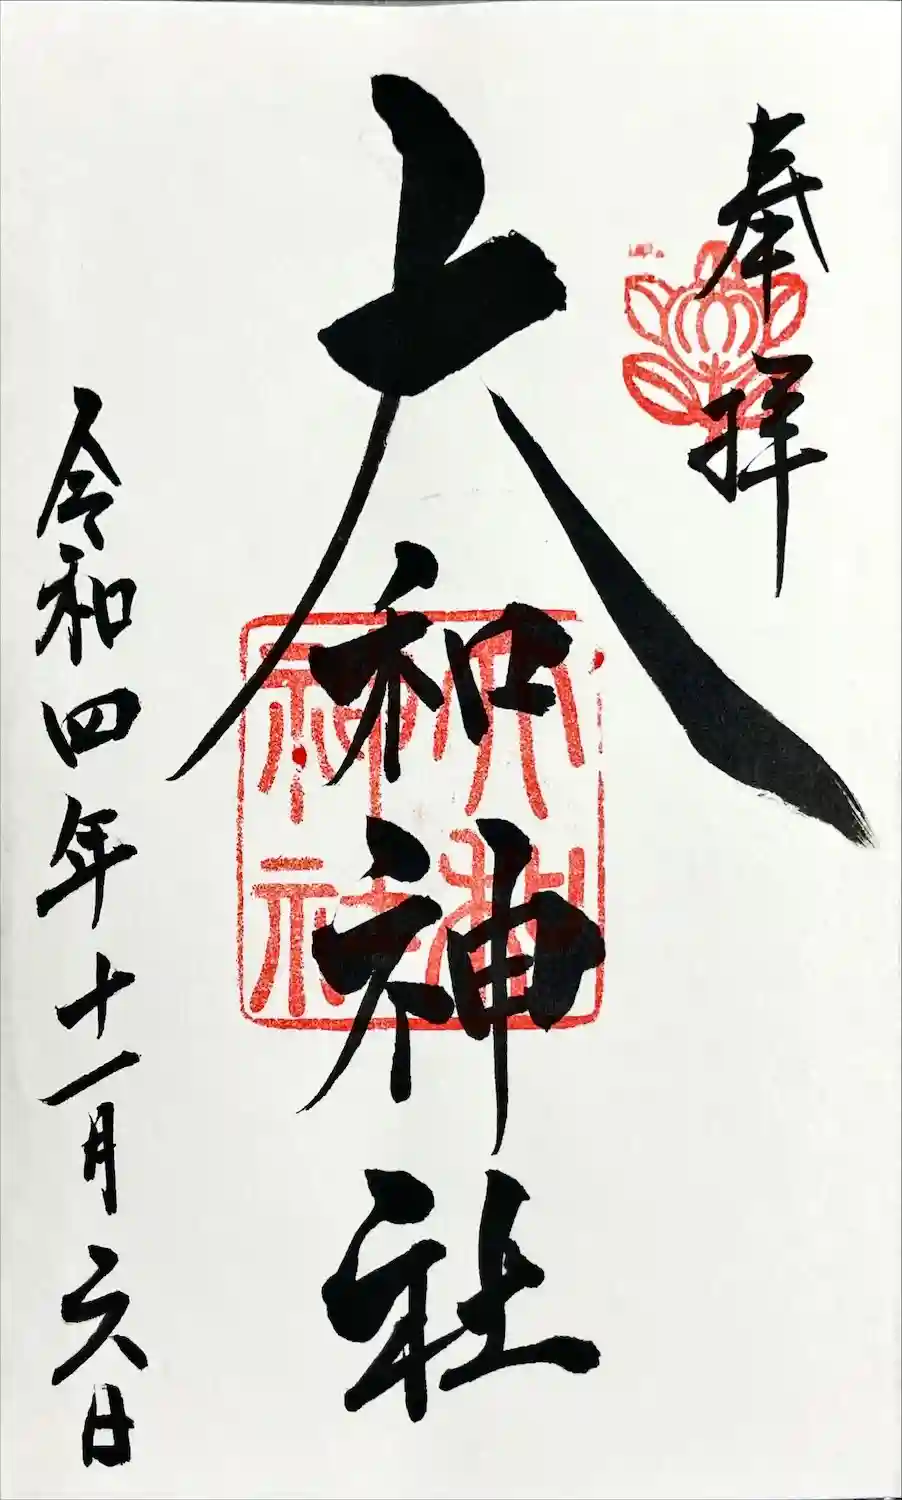 奉拝
大和神社
大和神社
令和四年十一月六日